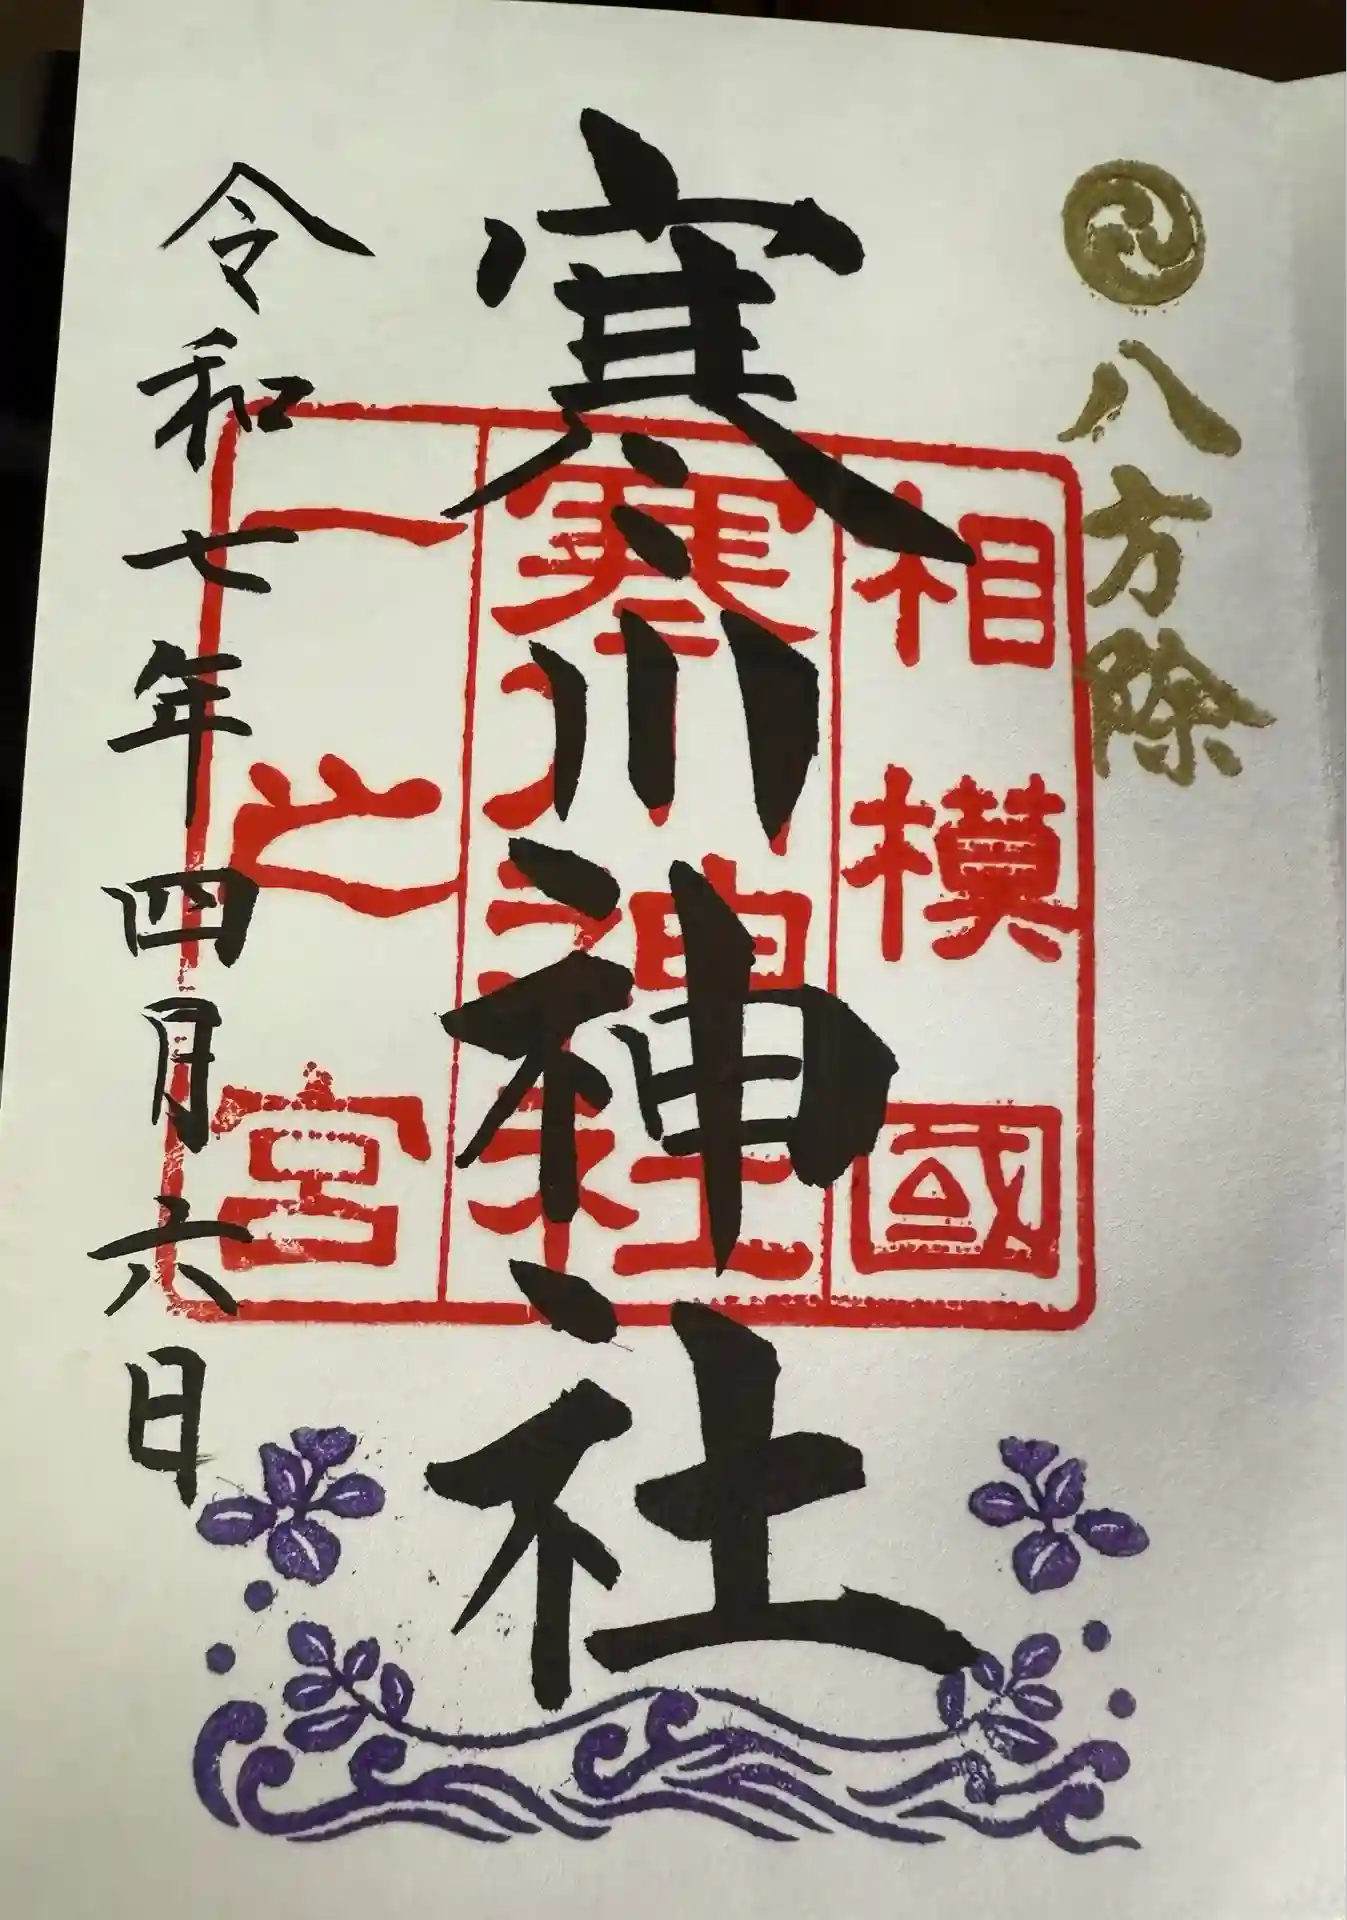 八方除
相模國
寒川神社
一之宮
寒川神社
令和七年四月六日